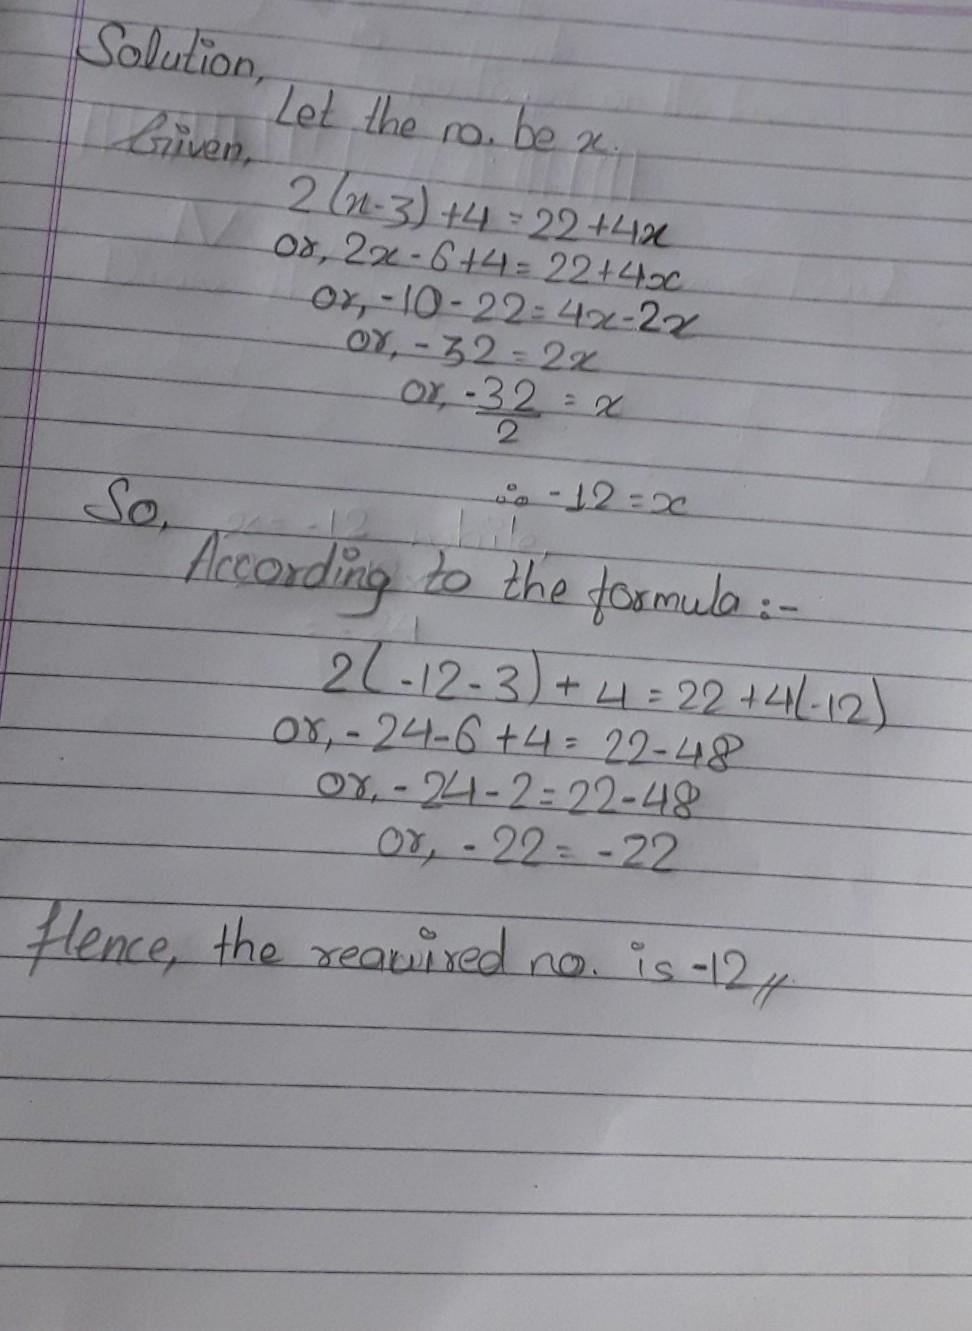 Solution,
Let the no. be x.
Given,
2(x-3)+4=22+4x
or, 2x-6+4=22+4x
or, -10-22=4x-2x
or, -32=2x
or, -32/2 = x
∴ -12=x
So,
According to the formula:-
2(-12-3)+4=22+4(-12)
or, -24-6+4=22-48
or, -24-2=22-48
or, -22=-22
Hence, the reqwired no. is -12//.